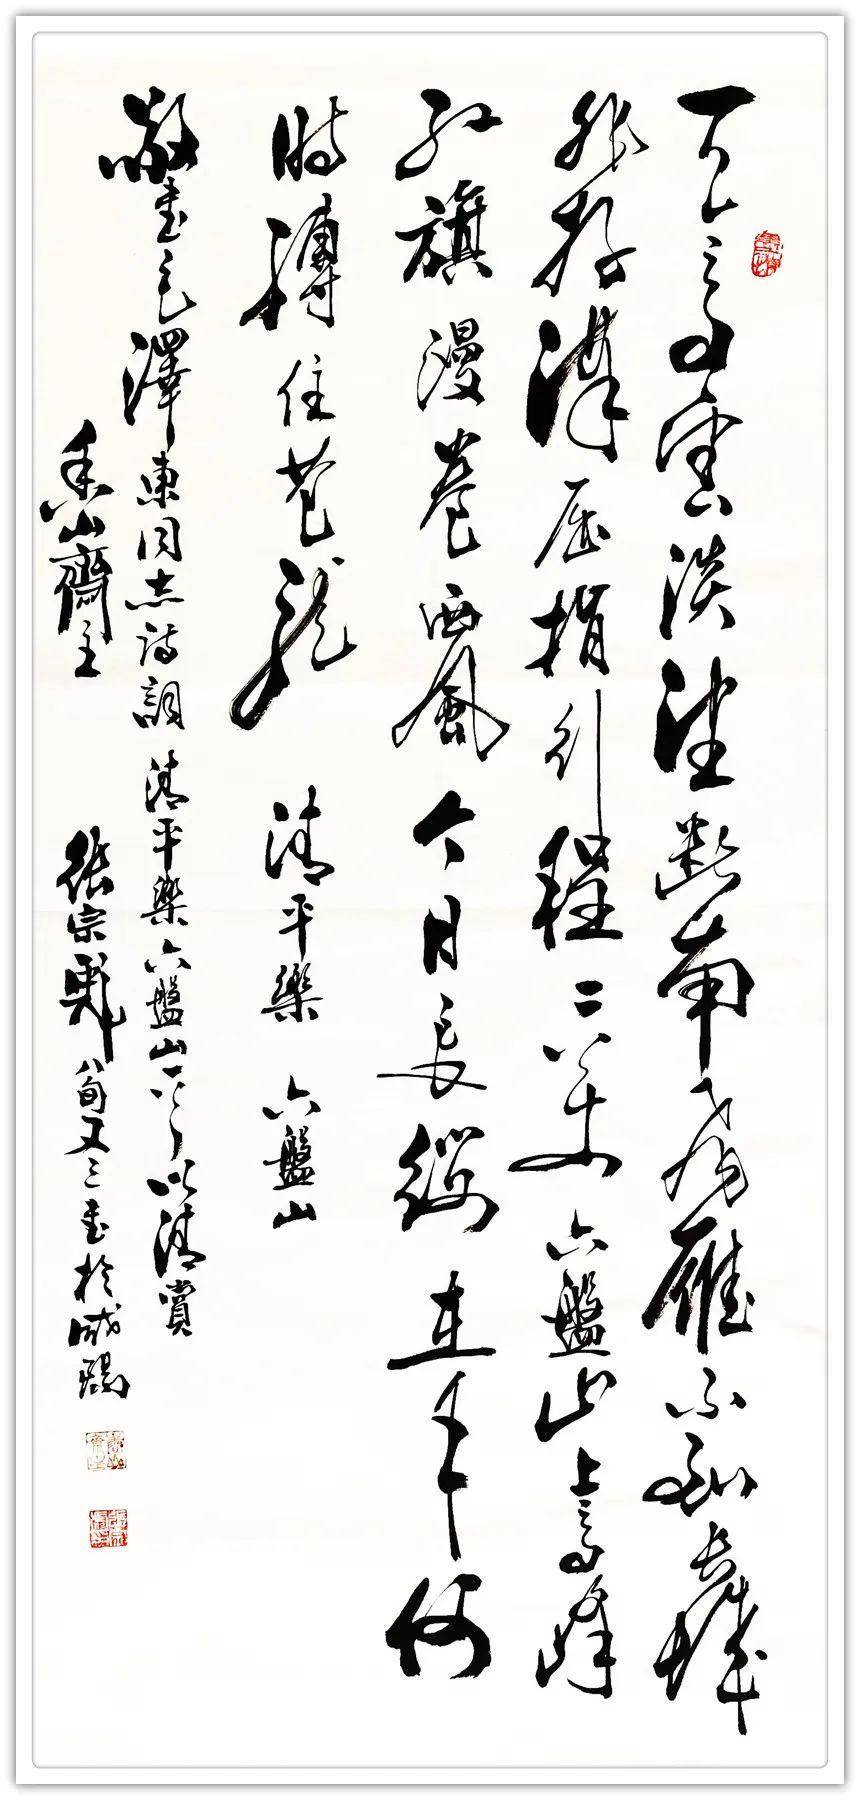 天高雲淡望斷南飛雁不到長城
非好漢屈指行程二萬六盤山上高峰
紅旗漫卷西風今日長纓在手何
時縛住蒼龍 清平樂 六盤山
敬書毛澤東同志詩詞清平樂六盤山一首以清賞
香山齋主 張宗 八旬又三書於咸陽